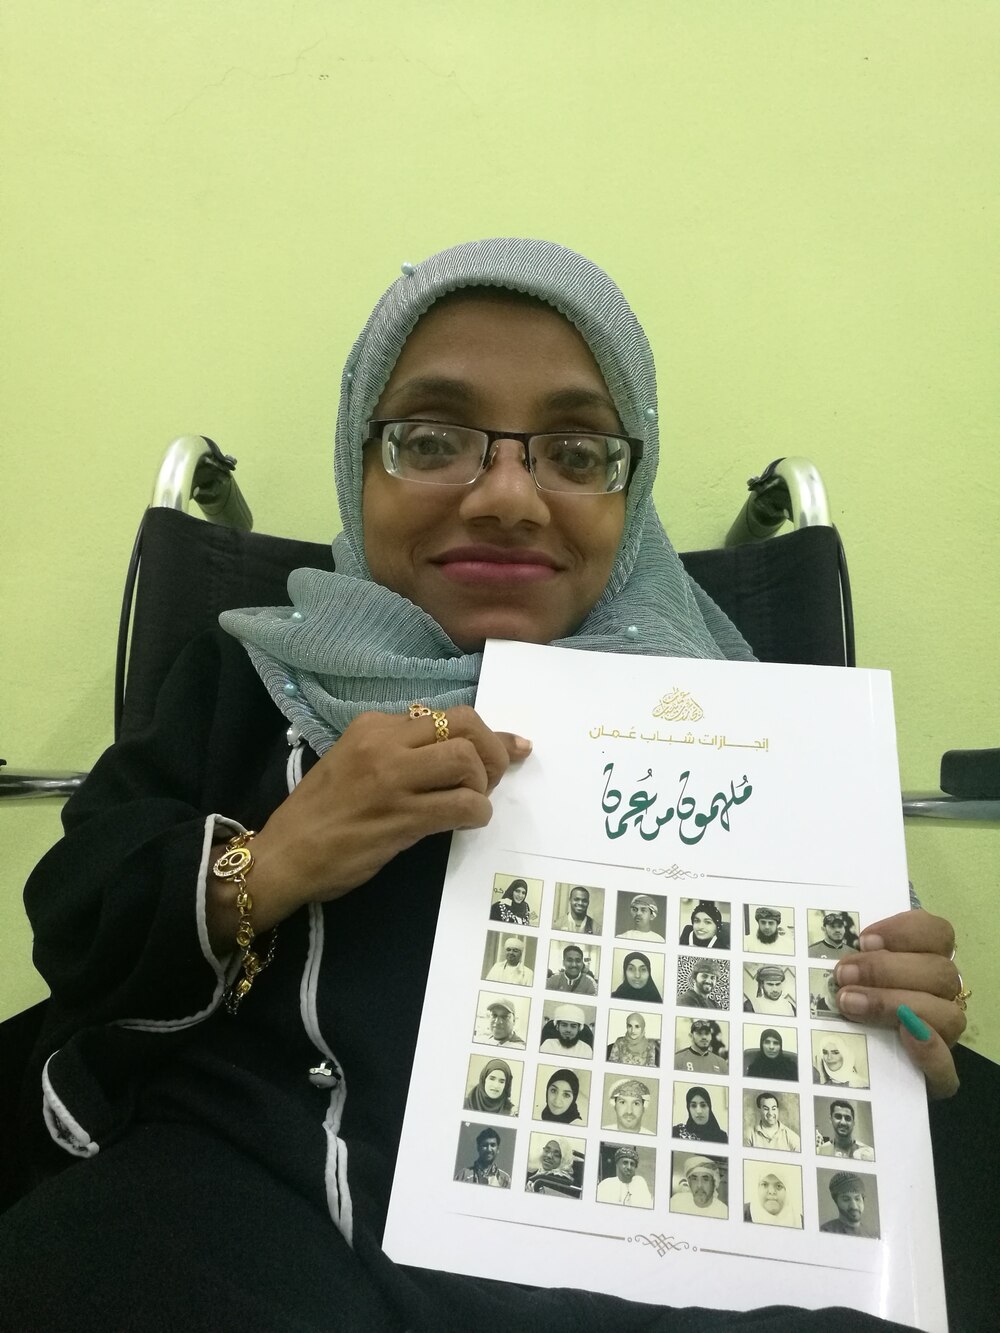 إنجازات شباب عُمان
مُلهمون من عُمان